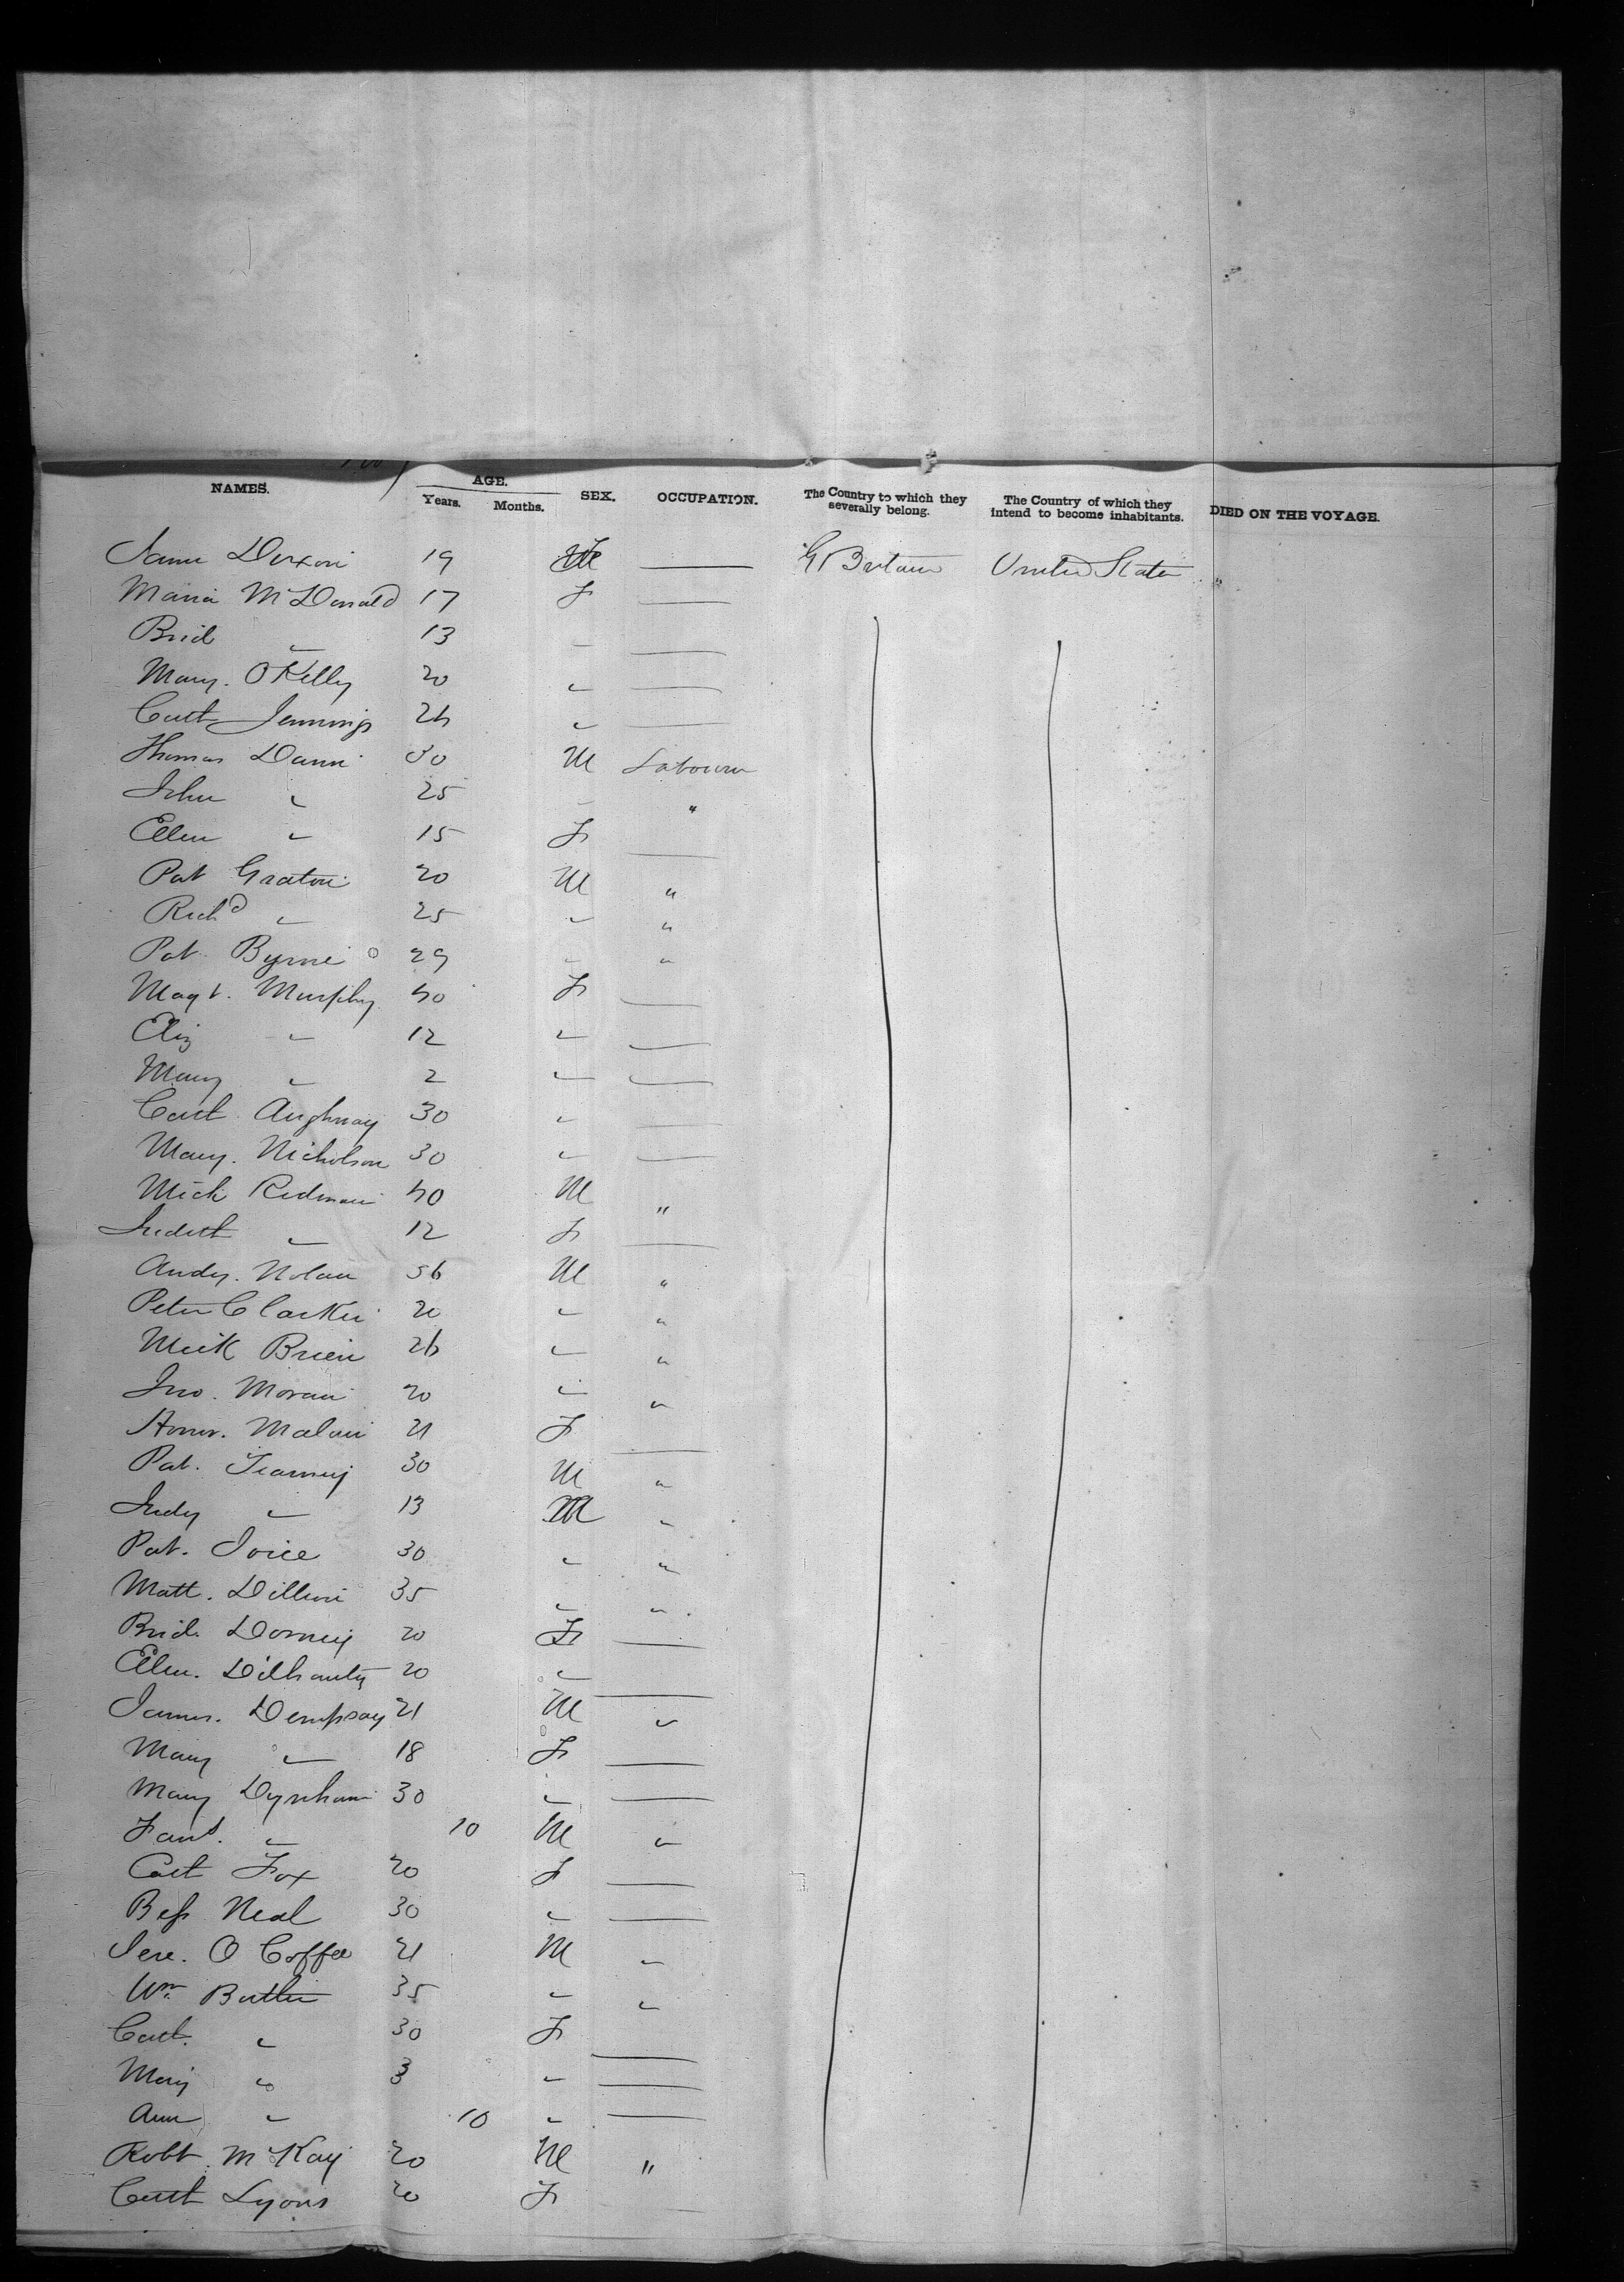 NAMES. AGE. Years. Months. SEX. OCCUPATION. The Country to which they severally belong. The Country of which they intend to become inhabitants. DIED ON THE VOYAGE.
19 F — Gt Britain United States "
Maria McDonald 17 F —
Brid " 13 " —
Mary. O'Kelly 20 " —
Cath Jennings 26 " —
Thomas Dunn 30 M Labourer
John " 25 " "
Ellen " 15 F —
Pat Graton 20 M "
Richd " 25 " "
Pat. Byrne 29 " "
Magt. Murphy 40 F —
Eliz " 12 " —
Mary " 2 " —
Cath 30 " —
Mary. Nicholson 30 " —
Mick Redman 40 M "
Judith " 12 F —
Andy. Nolan 56 M "
Peter Clarke 20 " "
Mick Brien 26 " "
Jno. Moran 20 " "
Honor. Malon 21 F —
Pat. 30 M "
Judy " 13 M "
Pat. Joice 30 " "
Matt. Dillon 35 " "
Brid. 20 F —
Ellen. 20 " —
James. Dempsay 21 M "
Mary " 18 F —
Mary Dynham 30 " —
" 10 M "
Cath Fox 20 F —
Bess Neal 30 " —
Jere. O Coffee 21 M "
Wm. Butler 35 " "
Cath. " 30 F —
Mary " 3 " —
Ann " 10 " —
Robt. McKay 20 M "
Cath Lyons 20 F —